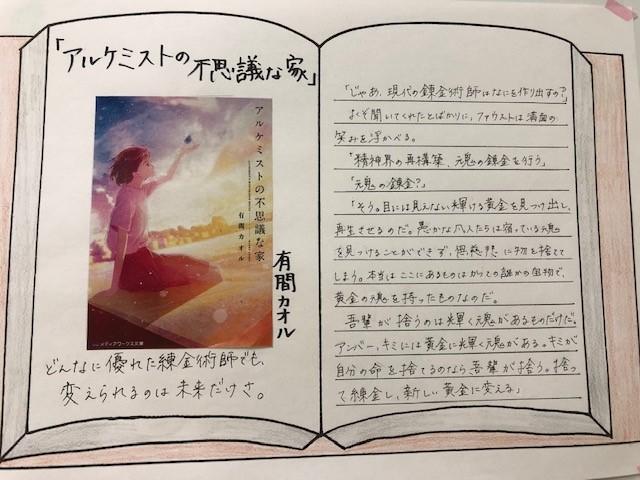 「アルケミストの不思議な家」
アルケミストの不思議な家
有間カオル
メディアワークス文庫
有間カオル
どんなに優れた練金術師でも、
変えられるのは未来だけさ。
「じゃあ、現代の錬金術師はなにを作り出すの？」
よくぞ聞いてくれたとばかりに、ファウストは満面の
笑みを浮かべる。
「精神界の再構築、魂の錬金を行う」
「魂の錬金？」
「そう。目には見えない輝ける黄金を見つけ出し、
再生させるのだ。愚かな凡人たちは宿っている魂
を見つけることができず、無慈悲に物を捨てて
しまう。本当はここにあるものはかつての誰かの宝物で、
黄金の魂を持ったものなのだ。
吾輩が捨うのは輝く魂があるものだけだ。
アンバー、キミには黄金に光輝く魂がある。キミが
自分の命を捨てるのなら吾輩が捨う。捨っ
て錬金し、新しい黄金に変える」